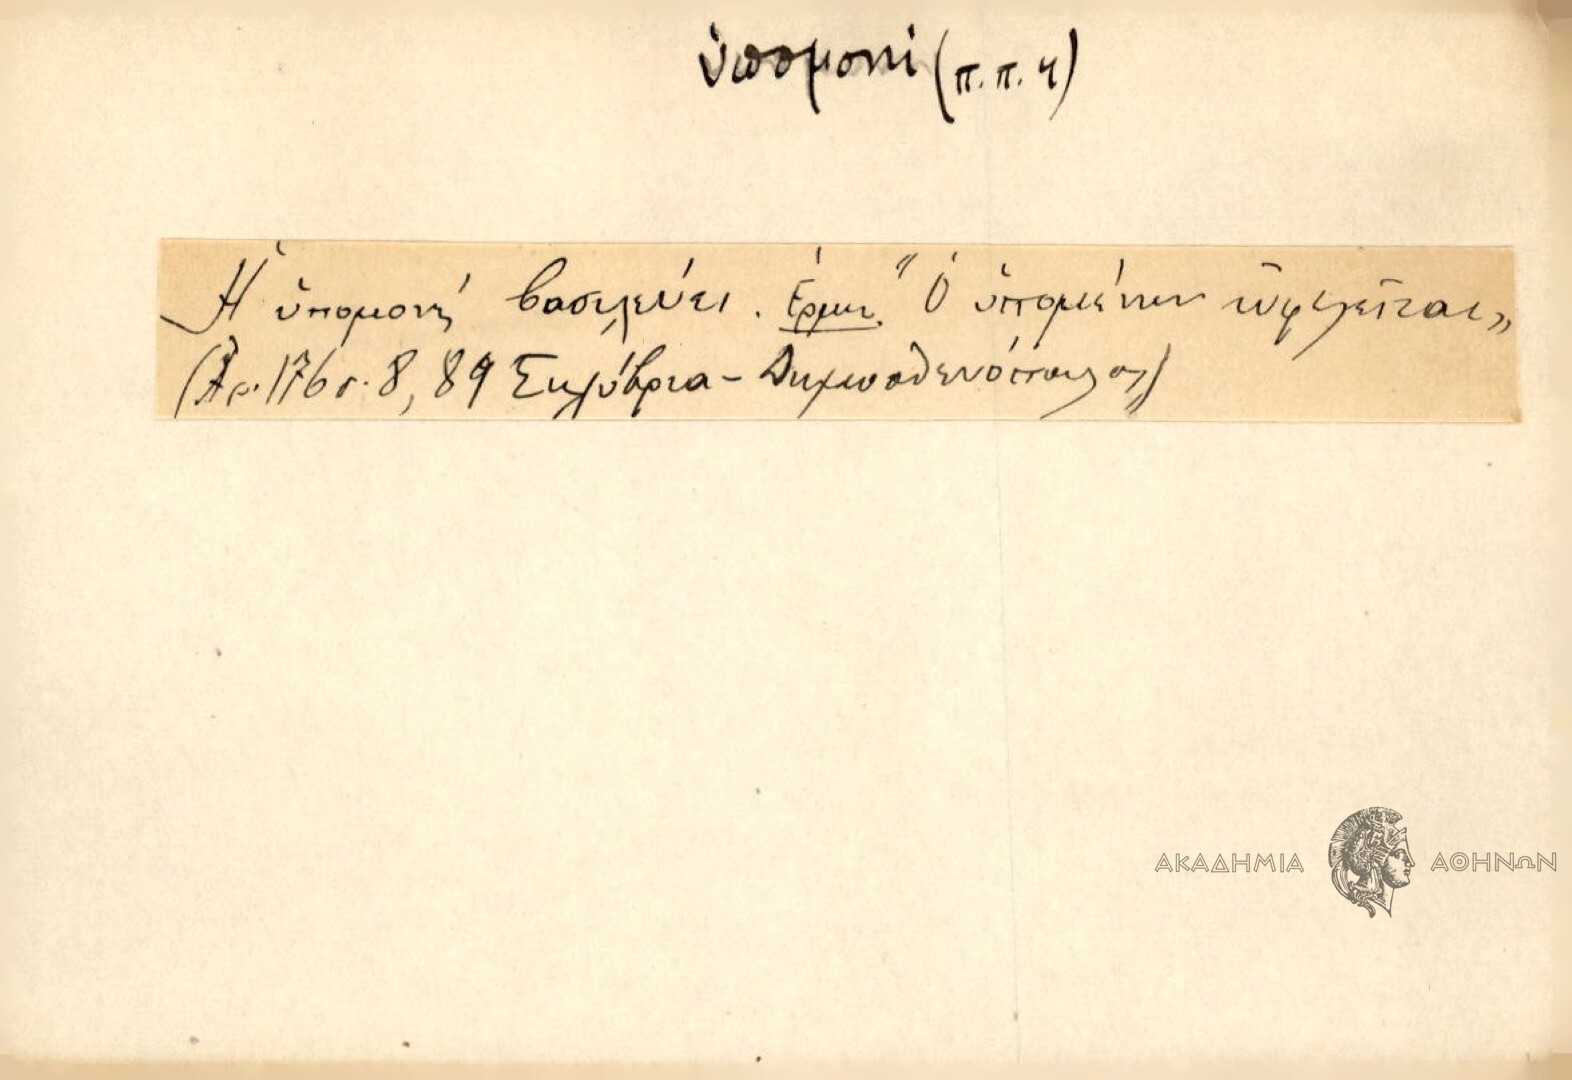 ὑπομονή (π.π. 4)
Ἡ ὑπομονή βασιλεύει. Ἑρμ. "Ὁ ὑπομένων ὠφελεῖται»
(Ἀρ. 176 σ. 8, 89 Σηλύβρια - Δημοσθενόπουλος)
ΑΚΑΔΗΜΙΑ ΑΘΗΝΩΝ